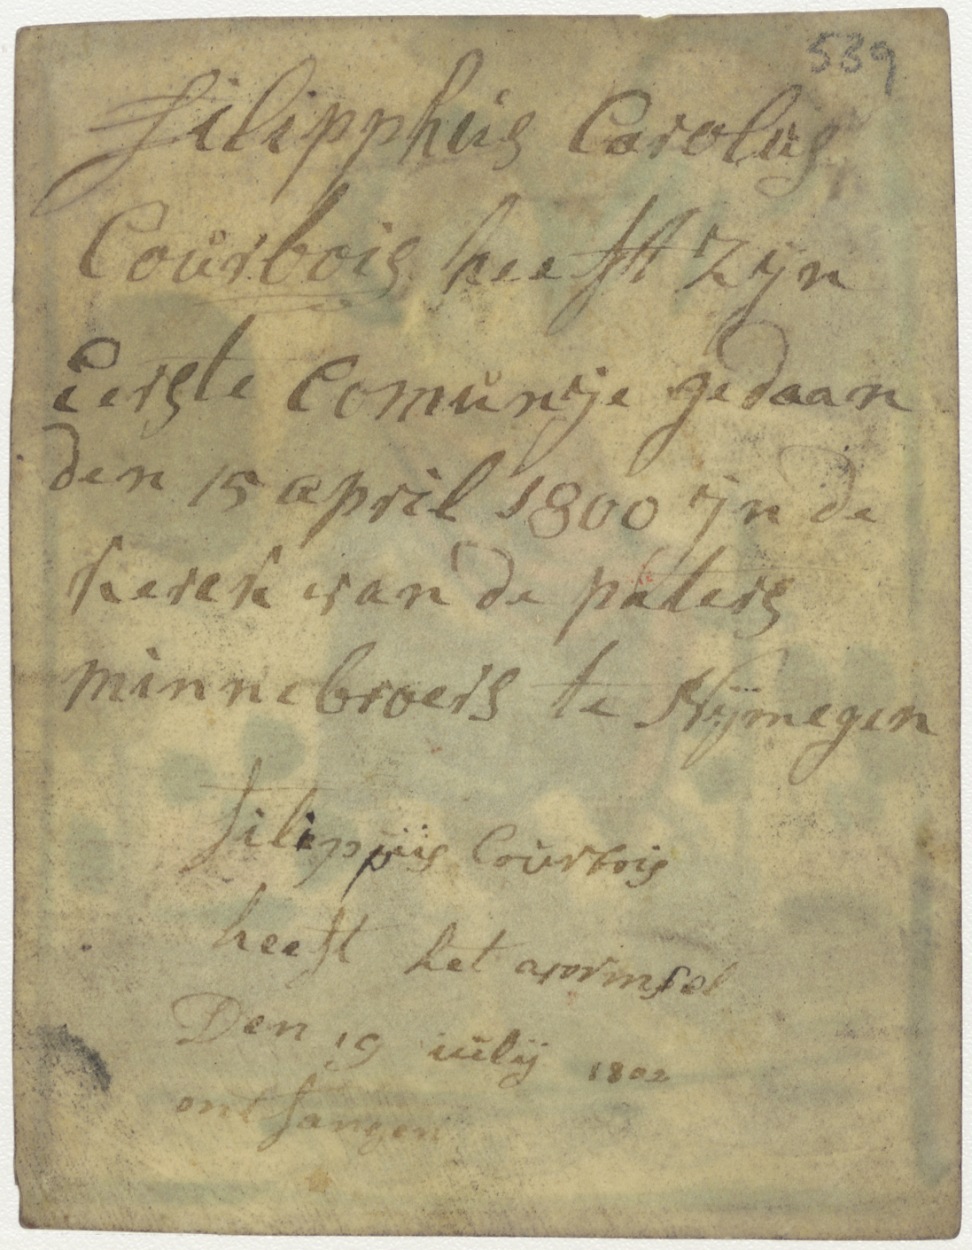 539
Filipphus Carolus
Courbois heeft Zijn
Eerste Comunije gedaan
den 15 april 1800 ijn de
kerek van de paters
minnebroers te Nijmegen
filippus Courbois
heeft het vormsel
Den 19 iulij 1802
ontfangen